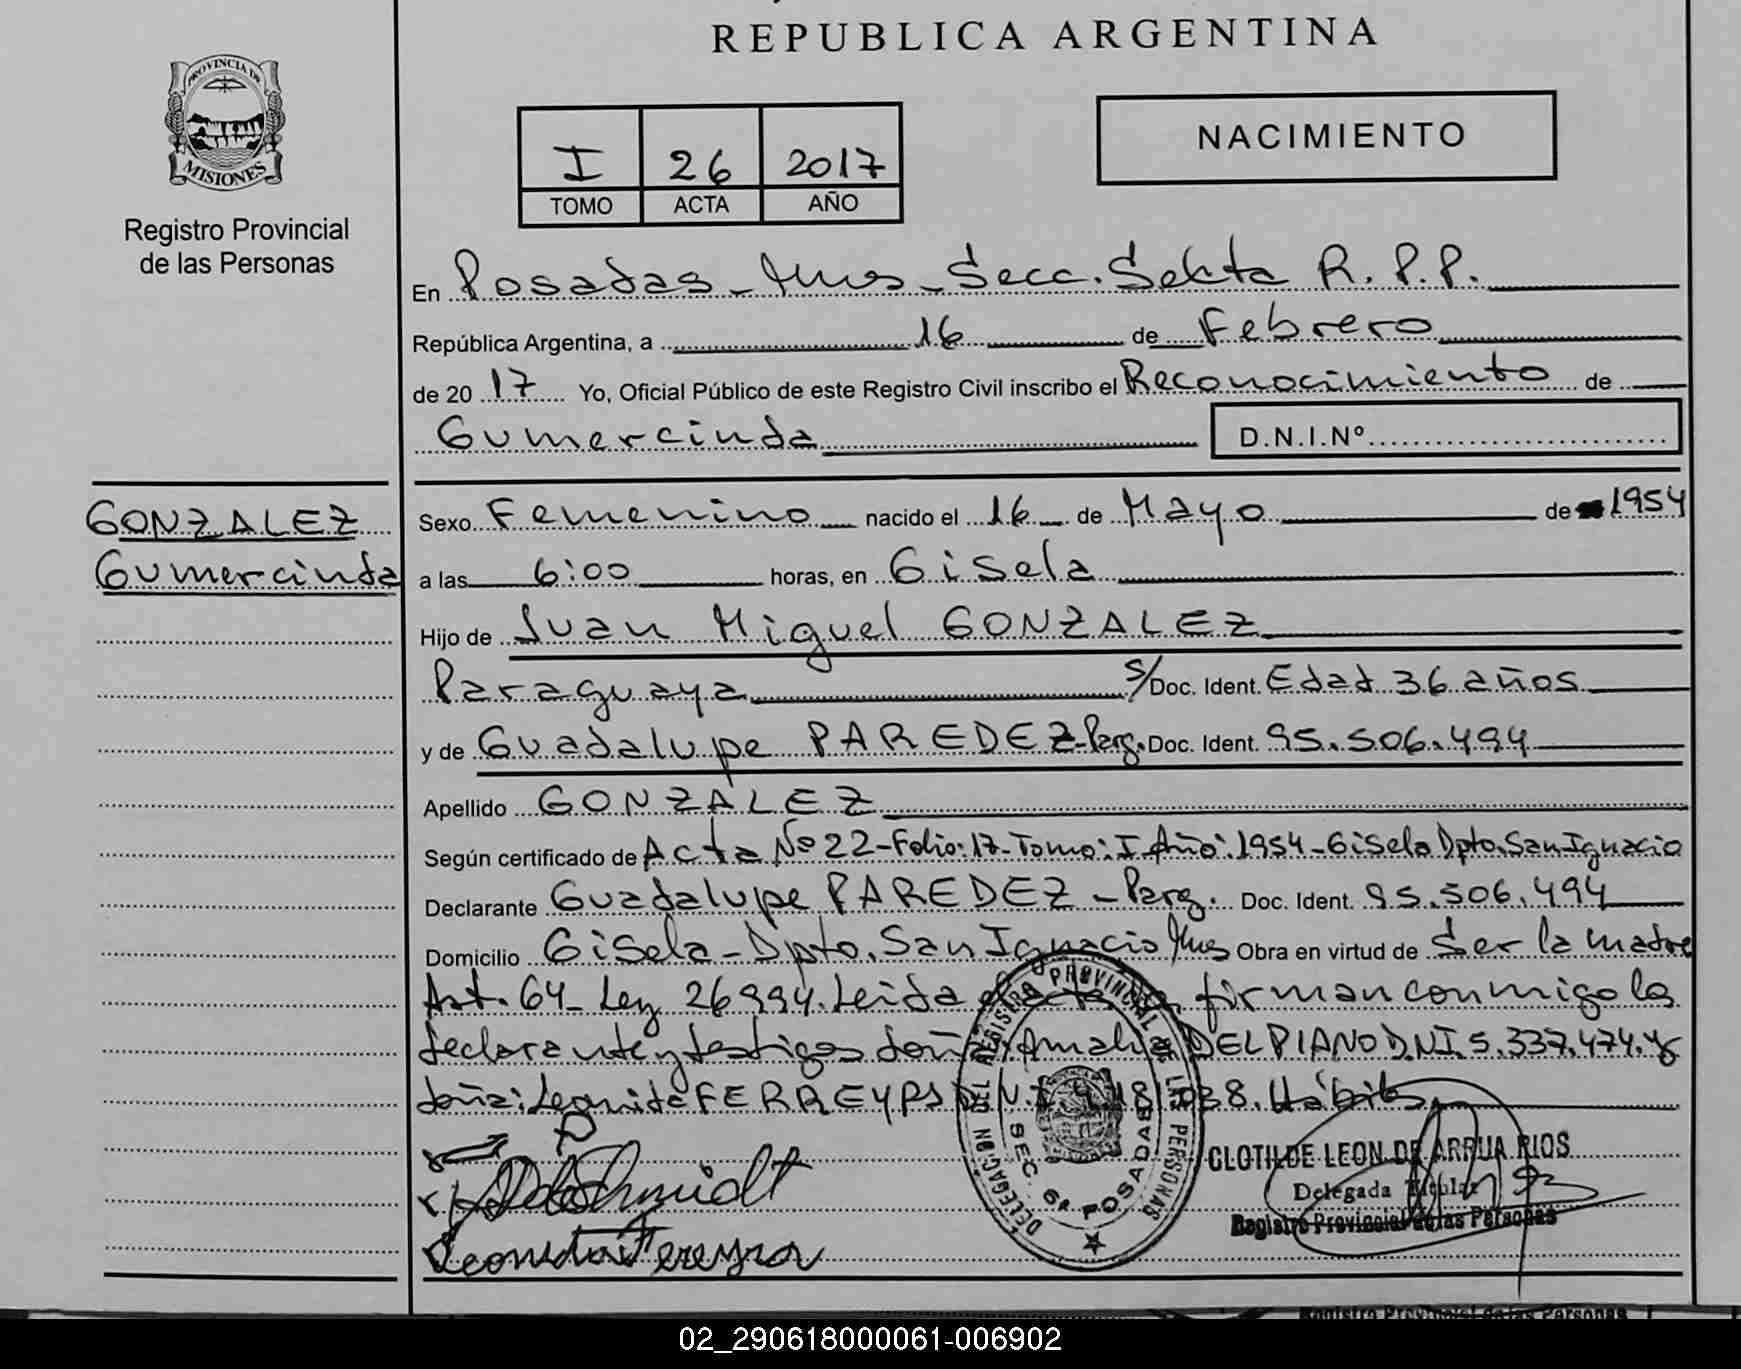 REPUBLICA ARGENTINA
PROVINCIA DE
MISIONES
Registro Provincial
de las Personas
I 26 2017
TOMO ACTA AÑO
NACIMIENTO
En Posadas - Mnes - Secc. Sekta R.P.P.
República Argentina, a 16 de Febrero
de 20 17 Yo, Oficial Público de este Registro Civil inscribo el Reconocimiento de
Gumercinda D.N.I.Nº
GONZALEZ
Gumercinda
Sexo Femenino nacido el 16 de Mayo de 1954
a las 6:00 horas, en Gisela
Hijo de Juan Miguel GONZALEZ
Paraguaya S/Doc. Ident. Edad 36 años
y de Guadalupe PAREDEZ - Parg. Doc. Ident. 95.506.494
Apellido GONZALEZ
Según certificado de Acta Nº 22 - Folio: 17 - Tomo: I Año: 1954 - Gisela Dpto. San Ignacio
Declarante Guadalupe PAREDEZ - Parg. Doc. Ident. 95.506.494
Domicilio Gisela - Dpto. San Ignacio Mnes Obra en virtud de Ser la madre
Art. 64 - Ley 26994. Leida el acta firman conmigo la
declarante y testigos doña: Amalia DELPIANO D.N.I. 5.337.474. y
doña: Leonida FERREYRA D.N.I. Hábiles
DELEGACION DEL REGISTRO PROVINCIAL DE LAS PERSONAS
SEC. 6ª POSADAS
CLOTILDE LEON DE ARRUA RIOS
Delegada Titular
Registro Provincial de las Personas
Schmidt
Leonida Fereyra
Registro Provincial de las Personas
02_290618000061-006902